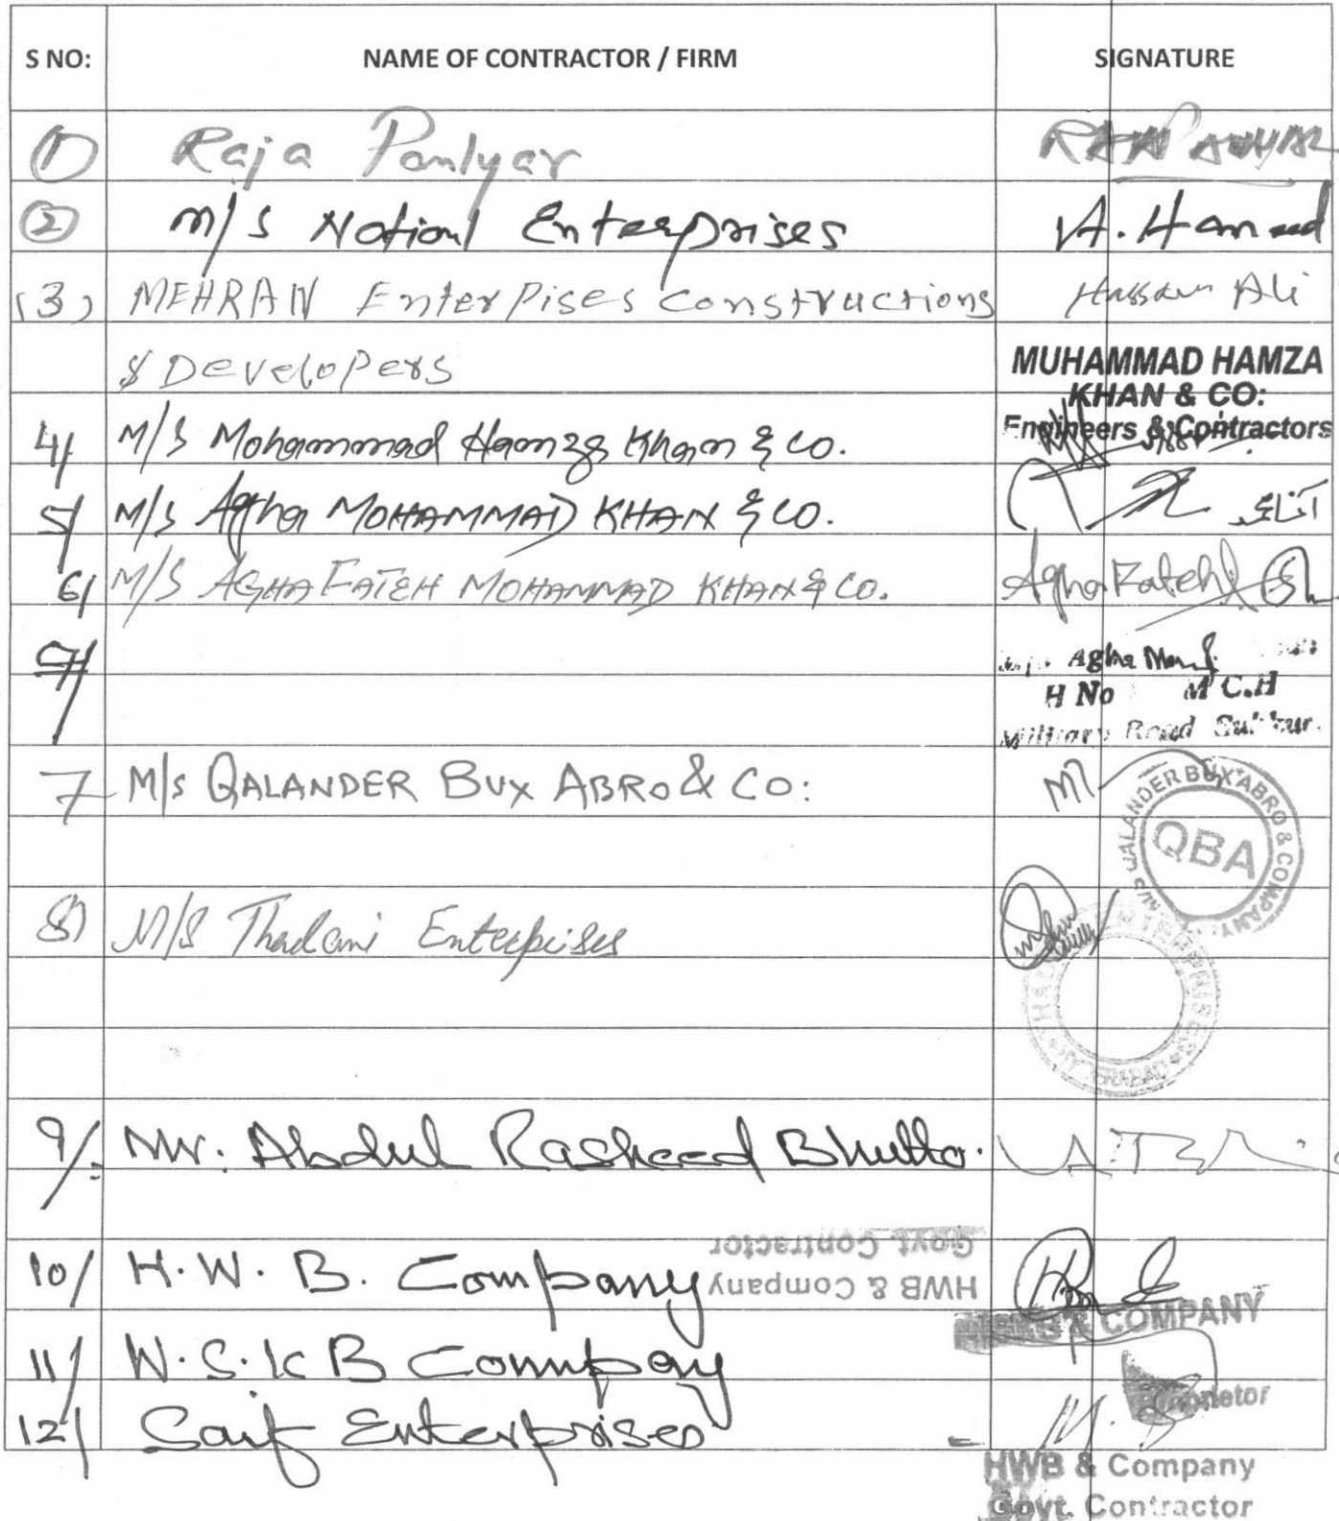 S NO: NAME OF CONTRACTOR / FIRM SIGNATURE
1) Raja Panlyar
2 M/S Notionl Enterprises A. Hameed
(3) MEHRAN Enterpises constructions Hassan Ali
& Developers
MUHAMMAD HAMZA
KHAN & CO:
Engineers & Contractors
4/ M/S Mohammad Hamza Khan & CO.
5/ M/S Agha MOHAMMAD KHAN & CO.
6/ M/S AGHA FATEH MOHAMMAD KHAN & CO. Agha Fateh
7/ Agha
H No M C.H
Military Road Sukkur.
7 M/s QALANDER BUX ABRO & CO:
M/S QALANDER BUX ABRO & COMPANY
QBA
8) M/S Thadani Enterpises
ENTERPRISES
9/. Mr. Abdul Rasheed Bhutto.
10/ H.W.B. Company
HWB & Company
Govt. Contractor
& COMPANY
11/ W.S.K B Company
Proprietor
12/ Saif Enterprises
HWB & Company
Govt. Contractor